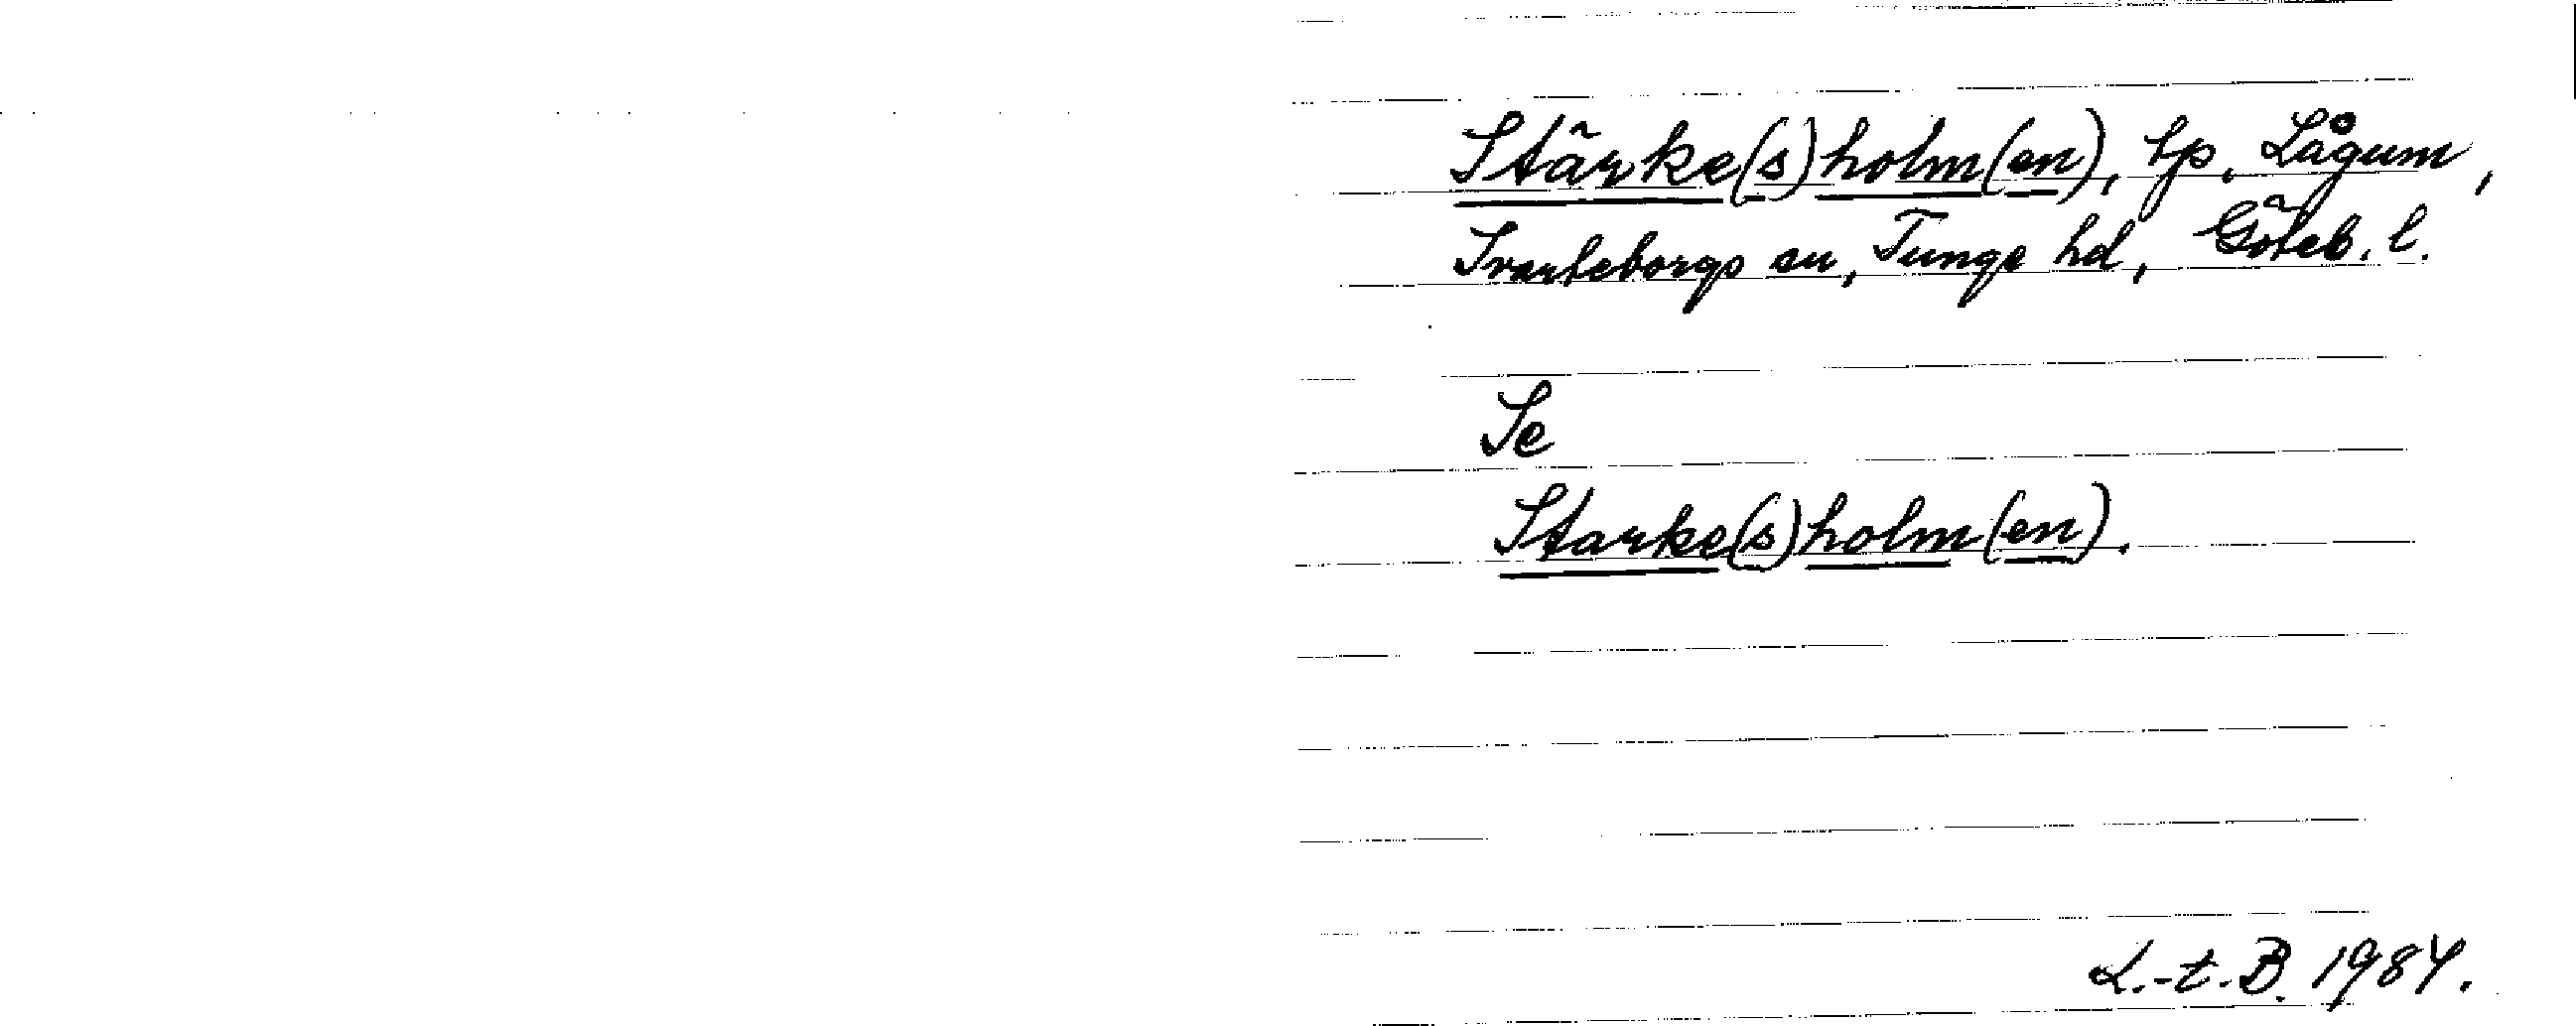 Stärke(s)holm(en), tp, Lågum,
Svarteborgs sn, Tunge hd, Göteb. l.
Se
Starke(s)holm(en).
L.-t.B. 1984.